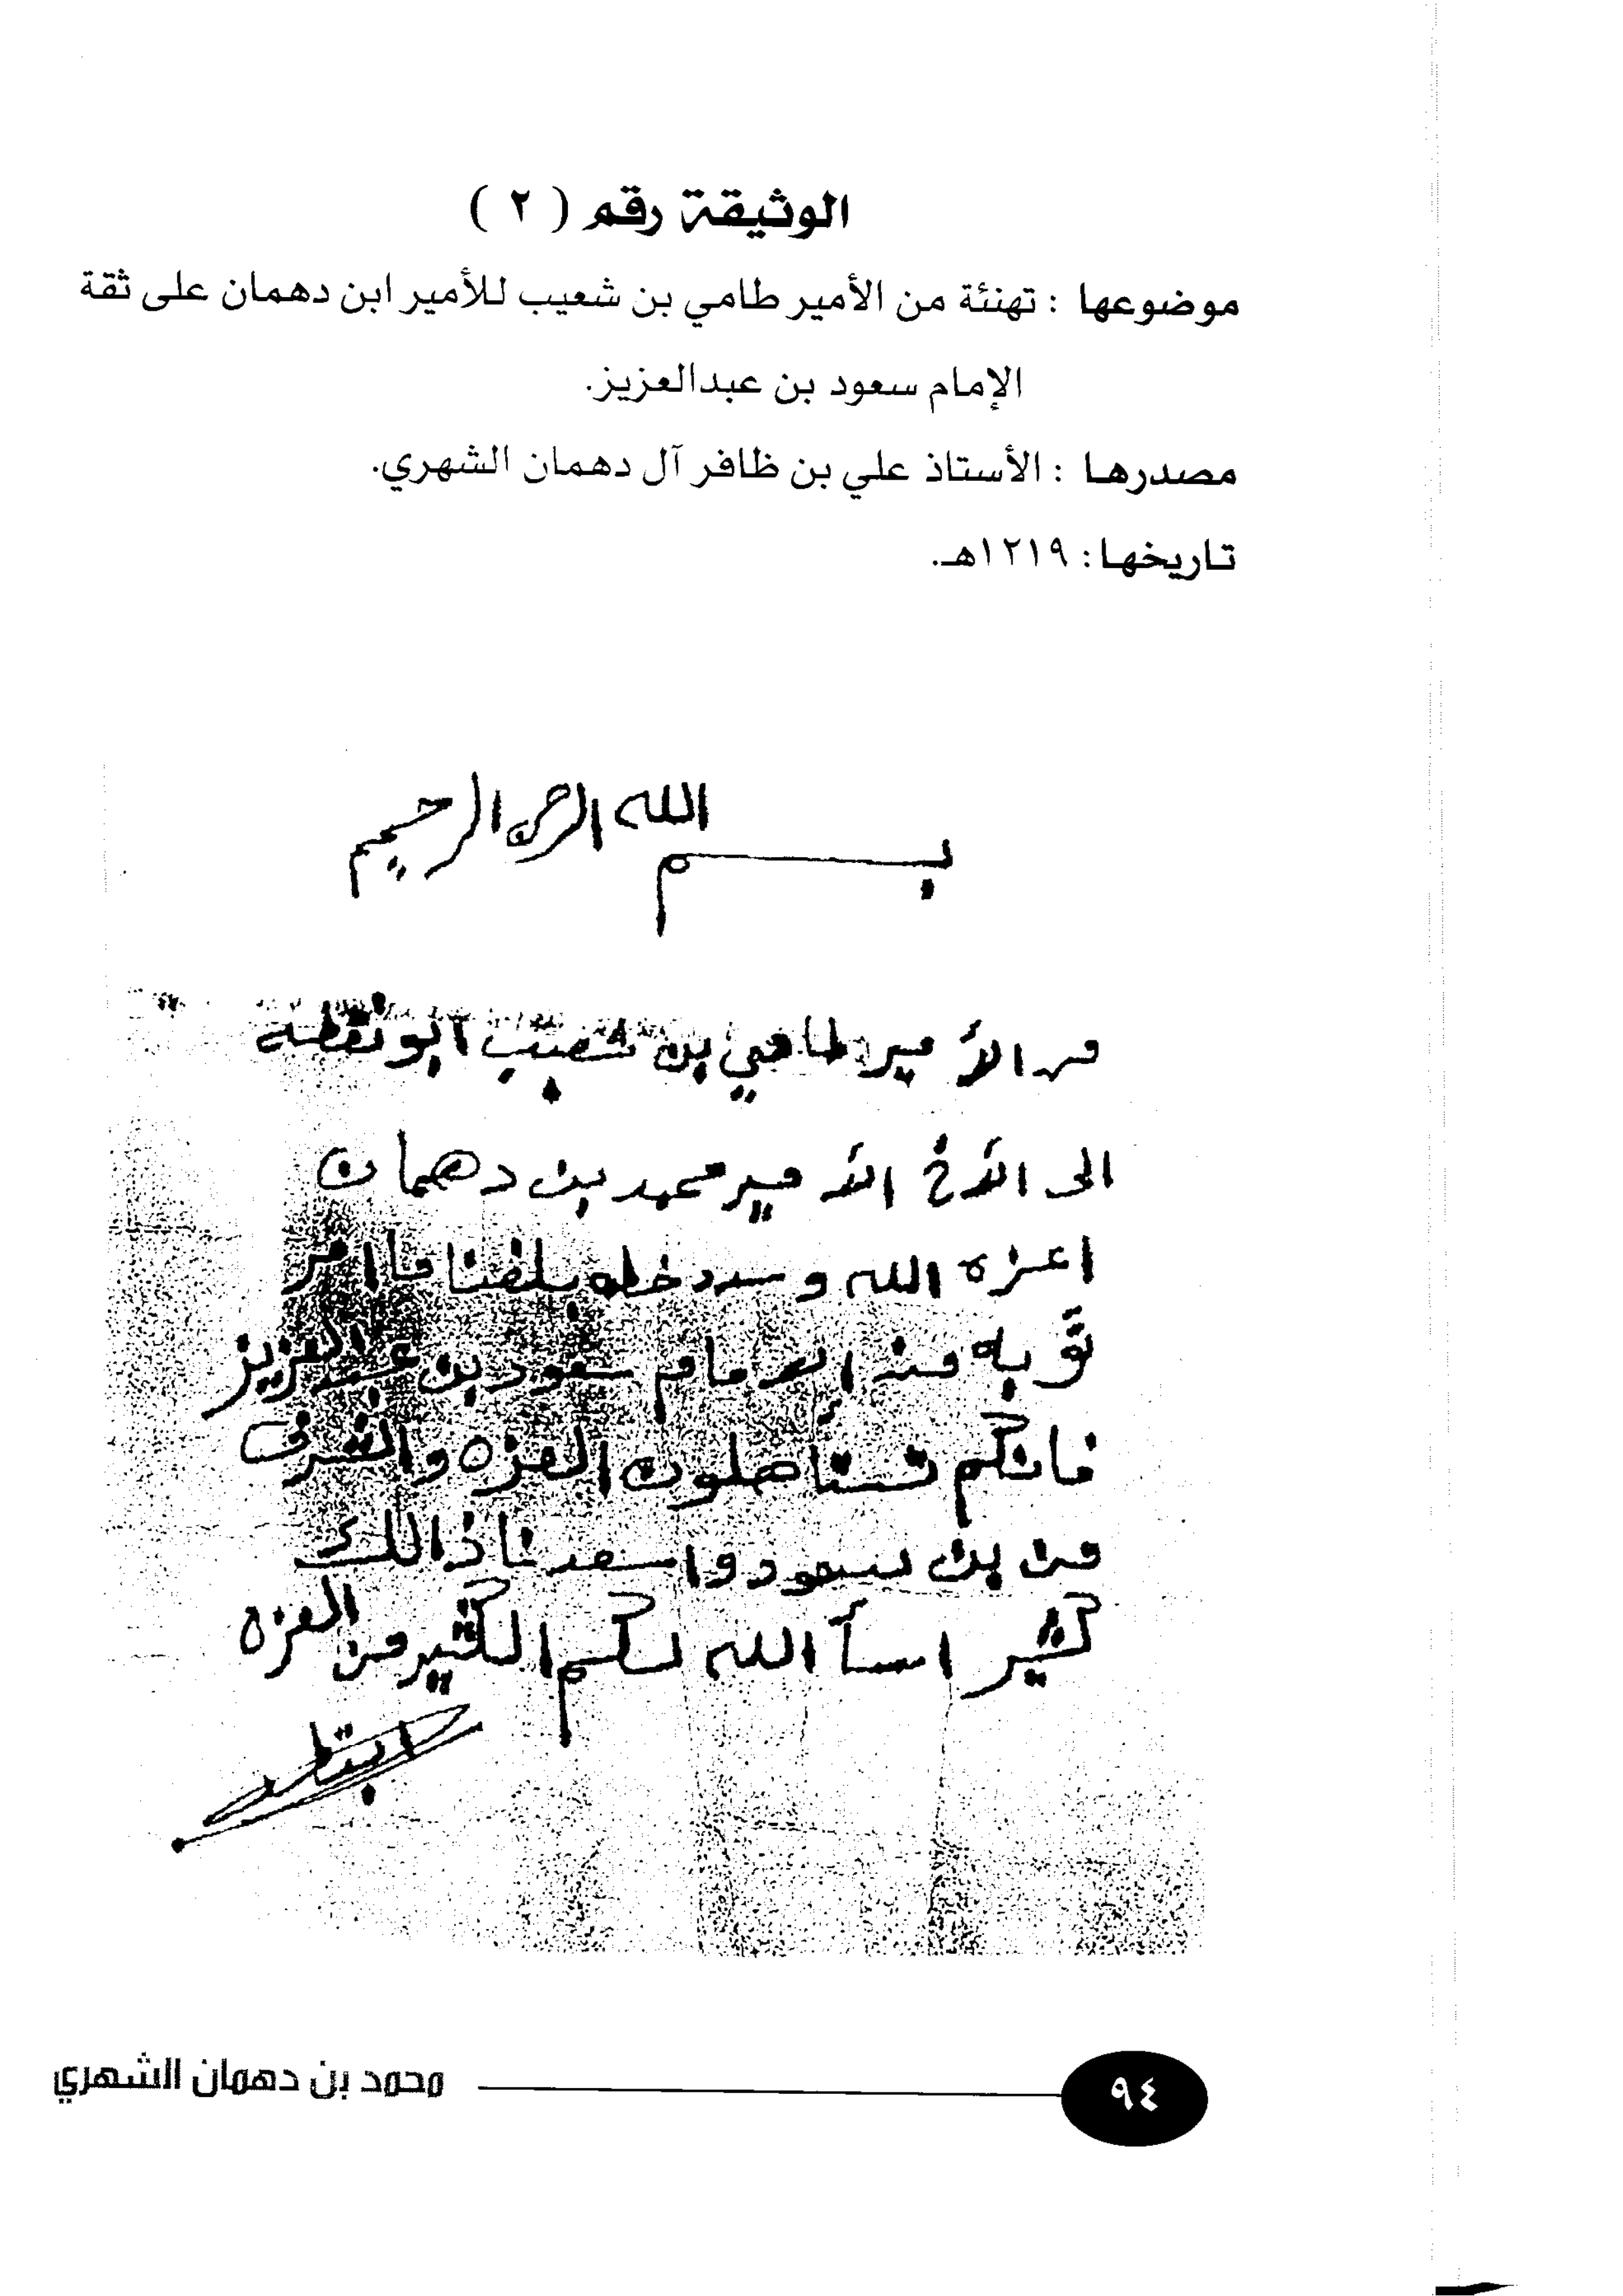 الوثيقة رقم ( ٢ )
موضوعها : تهنئة من الأمير طامي بن شعيب للأمير ابن دهمان على ثقة
الإمام سعود بن عبدالعزيز.
مصدرها : الأستاذ علي بن ظافر آل دهمان الشهري.
تاريخها : ١٢١٩هـ.
بسم الله الرحمن الرحيم
من الأمير طامي بن شعيب ابو نقطه
الى الأخ الأمير محمد بن دهمان
اعزه الله وسدد خطاه بلغنا ما امر
به من الامام سعود بن عبدالعزيز
فانكم تستأهلون العزه والشرف
من بن سعود واسعدنا ذالك
كثير اسأ الله لكم الكثير من العزه
محمد بن دهمان الشهري
٩٤